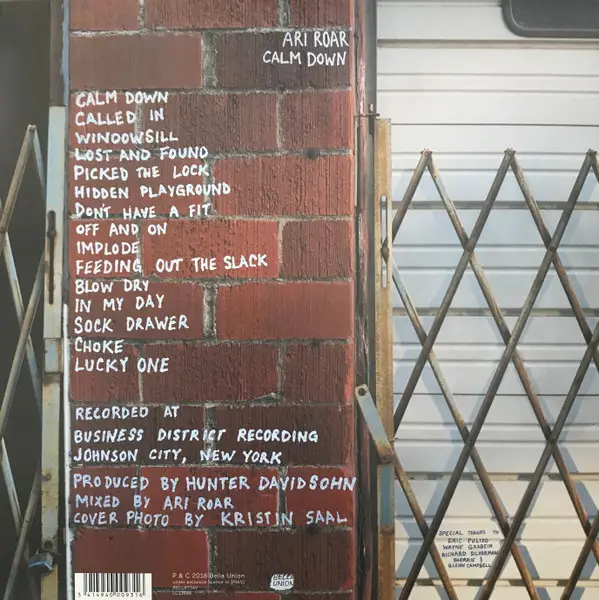 ARI ROAR
CALM DOWN
CALM DOWN
CALLED IN
WINDOWSILL
LOST AND FOUND
PICKED THE LOCK
HIDDEN PLAYGROUND
DON'T HAVE A FIT
OFF AND ON
IMPLODE
FEEDING OUT THE SLACK
BLOW DRY
IN MY DAY
SOCK DRAWER
CHOKE
LUCKY ONE
RECORDED AT
BUSINESS DISTRICT RECORDING
JOHNSON CITY, NEW YORK
PRODUCED BY HUNTER DAVIDSOHN
MIXED BY ARI ROAR
COVER PHOTO BY KRISTIN SAAL
SPECIAL THANKS TO
ERIC PULIDO
RICHARD SILVERMAN
GLENN CAMPBELL
P & C 2018 Bella Union
under exclusive licence to [PIAS]
BELLA
UNION
5 414940 009316